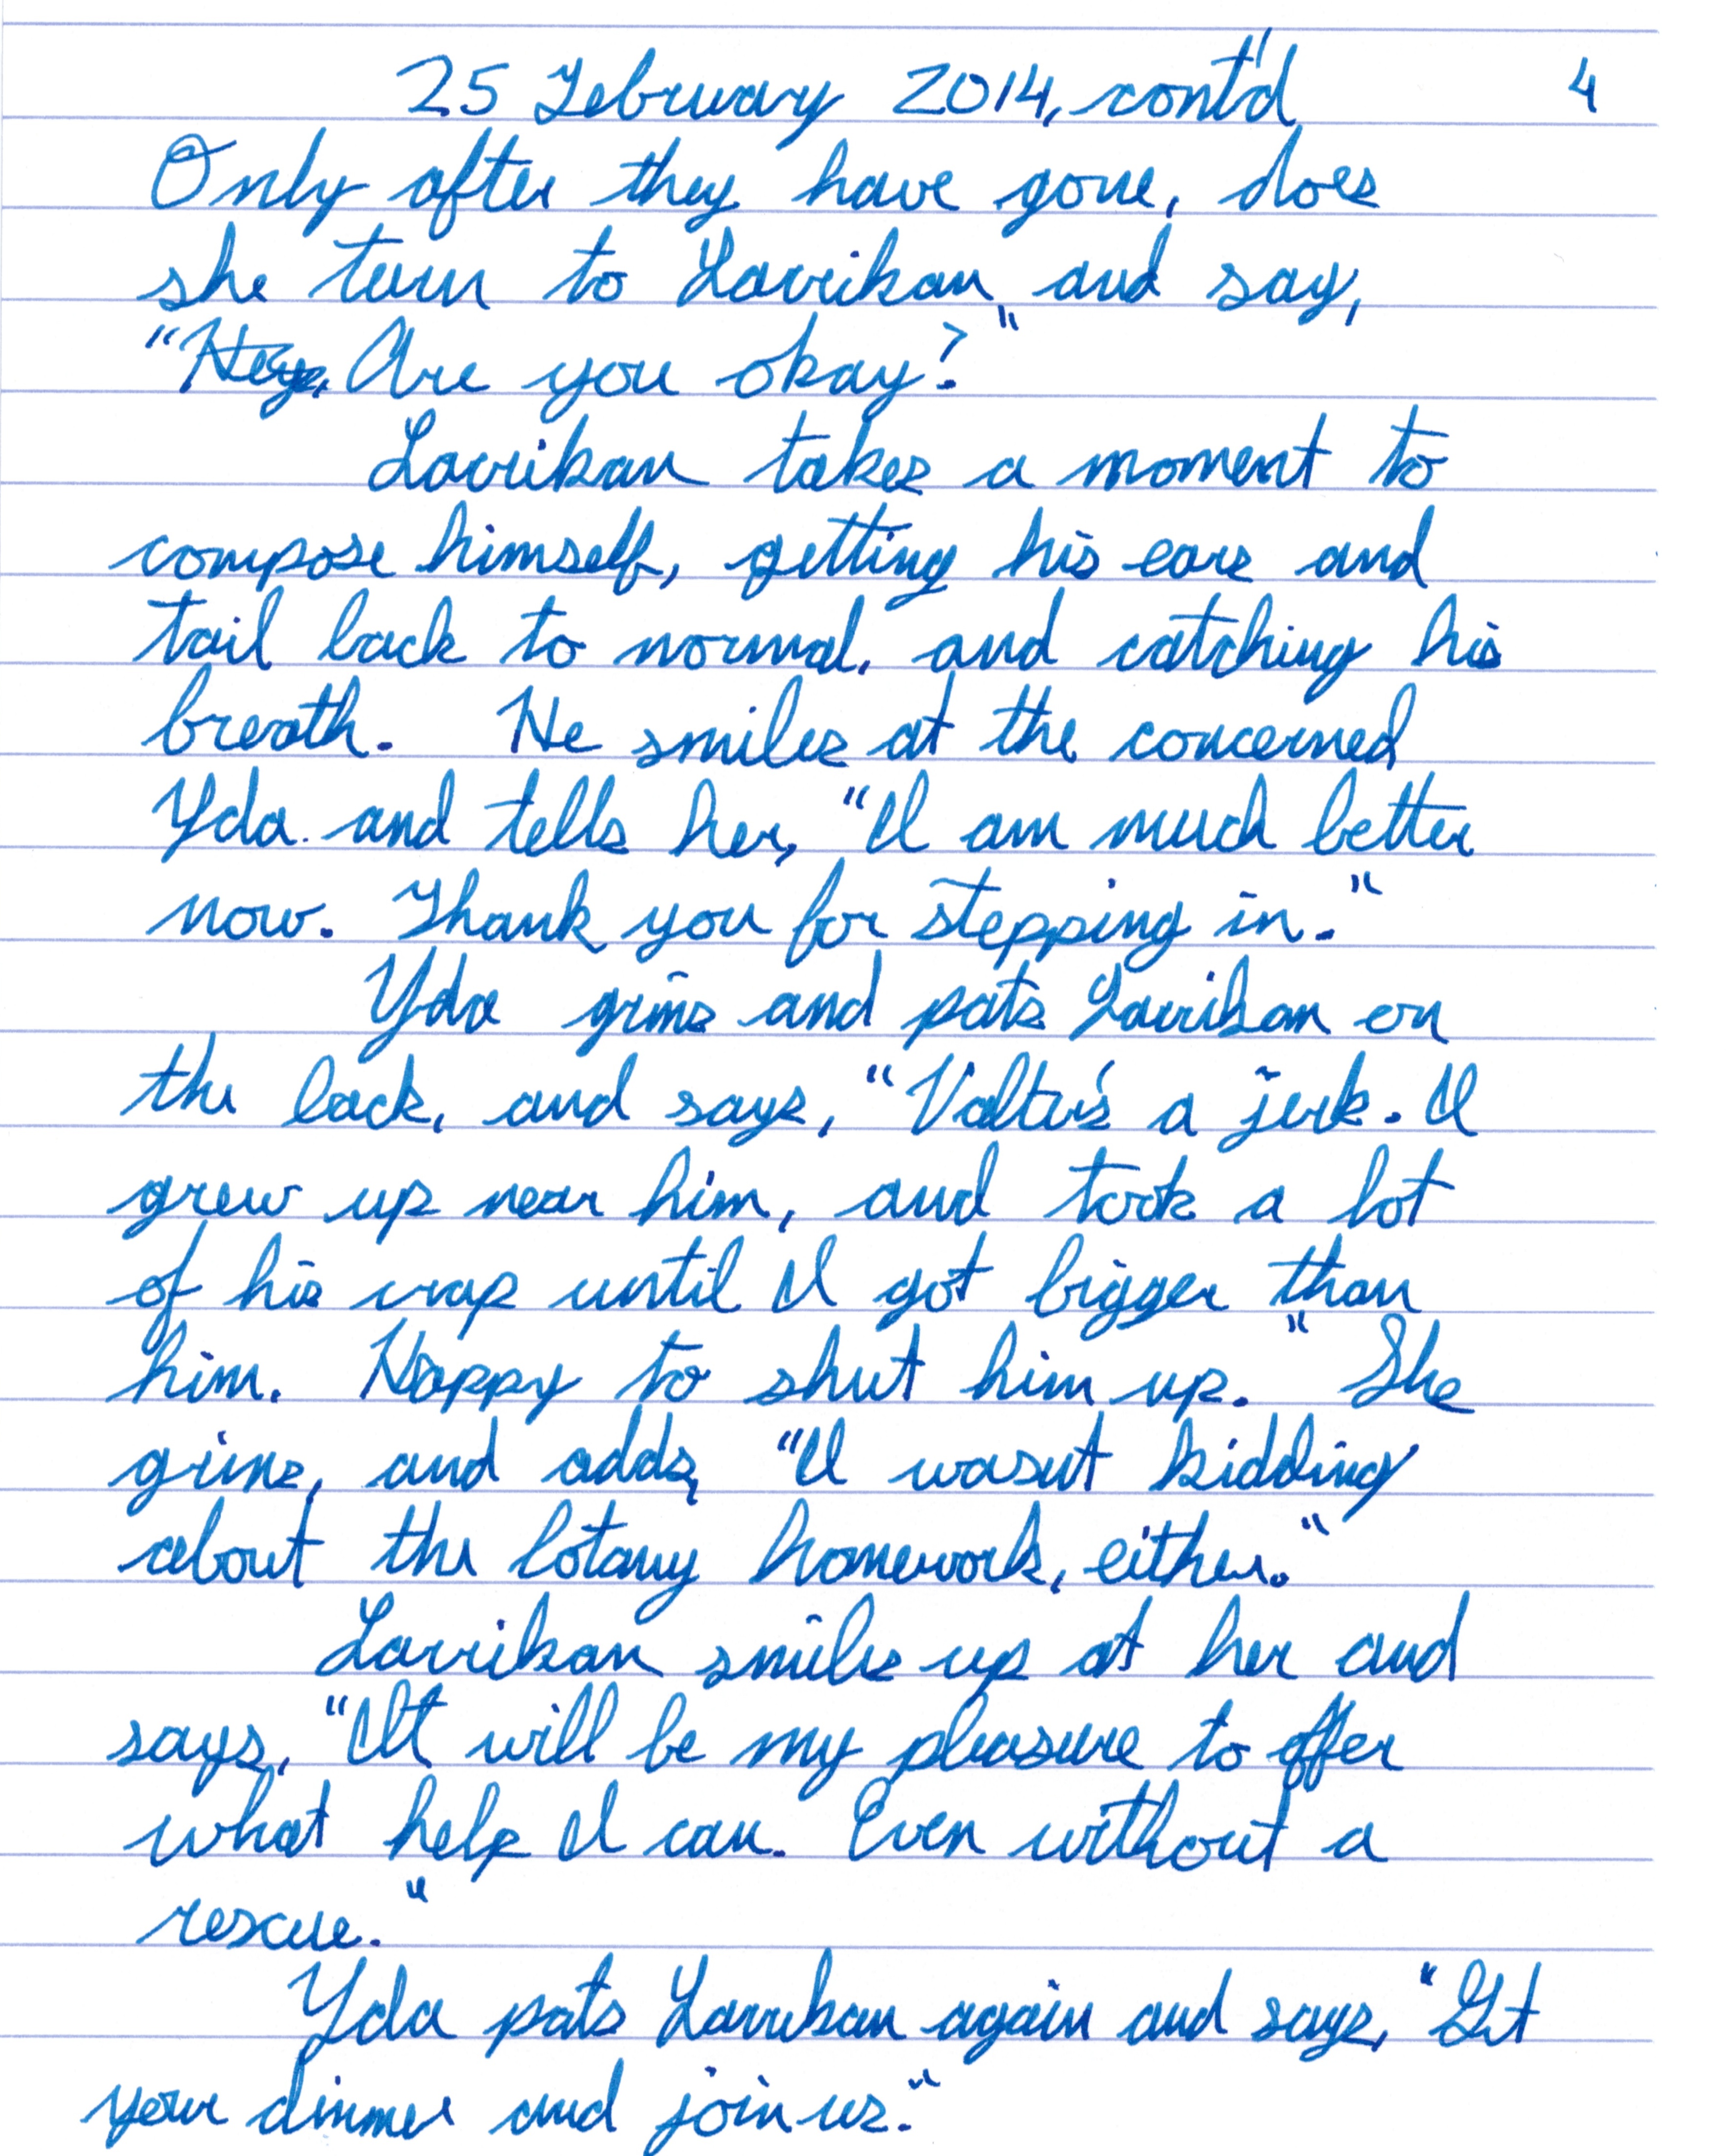 25 February 2014, cont'd 4
Only after they have gone, does
she turn to Larrikan and say,
"Hey. Are you okay?"
Larrikan takes a moment to
compose himself, getting his ears and
tail back to normal, and catching his
breath. He smiles at the concerned
Yda and tells her, "I am much better
now. Thank you for stepping in."
Yda grins and pats Larrikan on
the back, and says, "Valter's a jerk. I
grew up near him, and took a lot
of his crap until I got bigger than
him. Happy to shut him up." She
grins, and adds, "I wasn't kidding
about the botany homework, either."
Larrikan smiles up at her and
says, "It will be my pleasure to offer
what help I can. Even without a
rescue."
Yda pats Larrikan again and says, "Get
your dinner and join us."